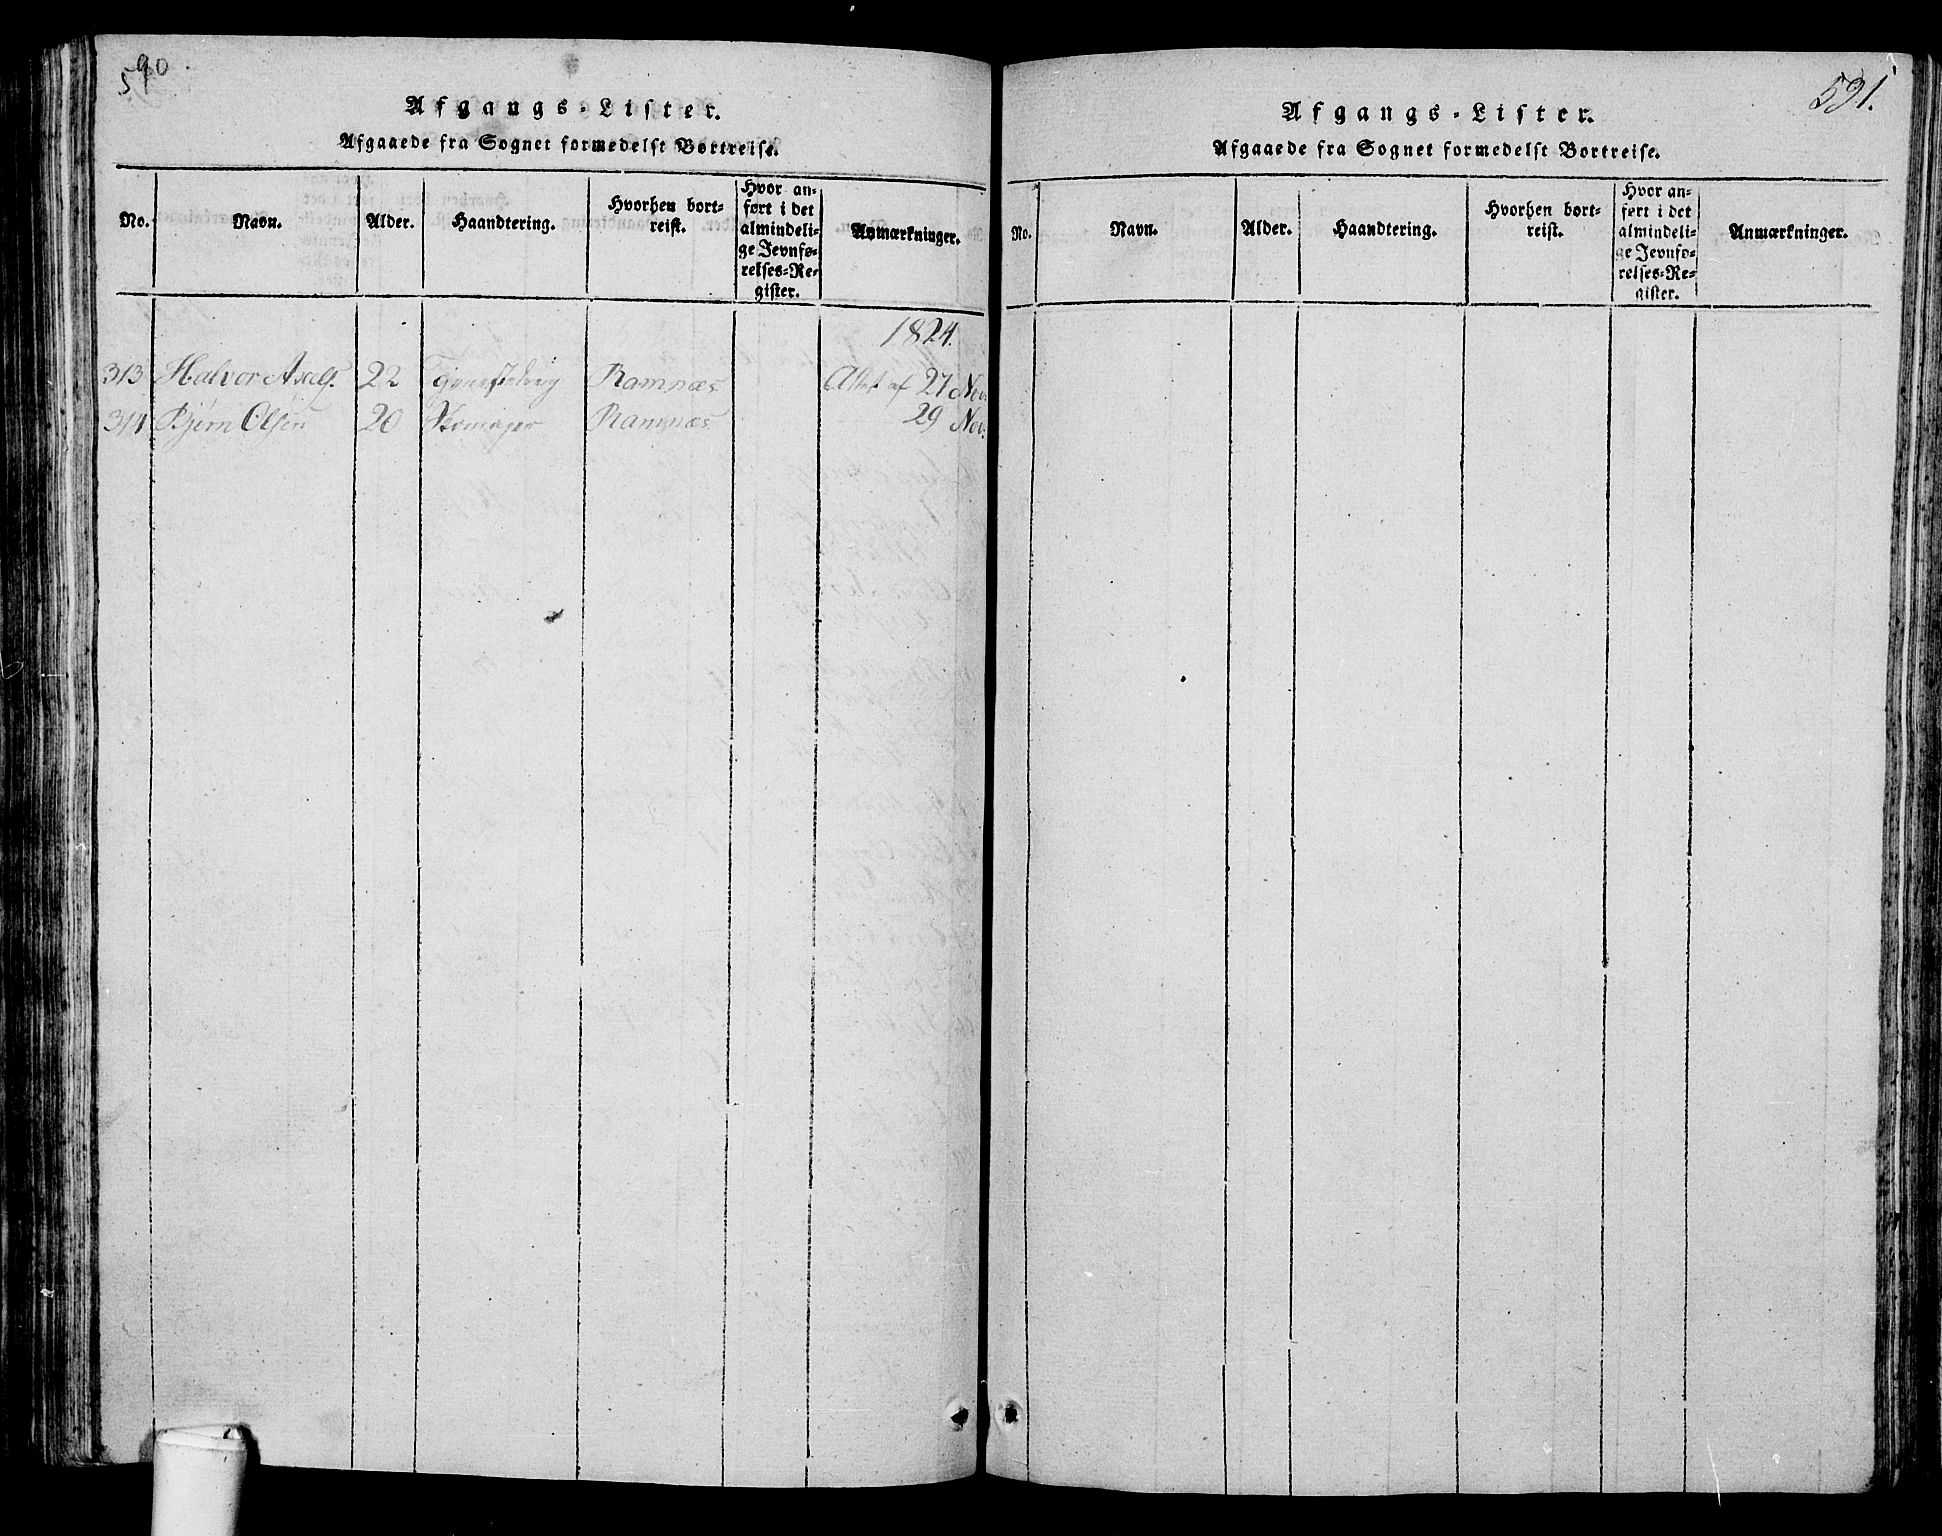 590
Afgangs-Lister.
Afgaaede fra Sognet formedelst Bortreise.
No. Navn. Alder. Haandtering. Hvorhen bort-
reist. Hvor an-
ført i det
almindeli-
ge Jevnfø-
relses-Re-
gister. Anmærkninger.
1824.
313 Halvor 22 Ramnæs 27 Nov:
314 Bjørn Olsen 20 Skomager Ramnæs 29 Nov:
591.
Afgangs-Lister.
Afgaaede fra Sognet formedelst Bortreise.
No. Navn. Alder. Haandtering. Hvorhen bort-
reist. Hvor an-
ført i det
almindeli-
ge Jevnfø-
relses-Re-
gister. Anmærkninger.